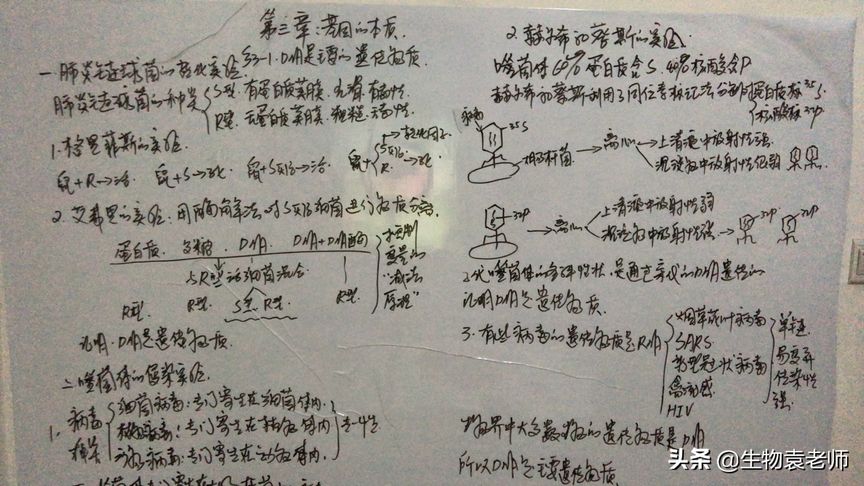 第三章:基因的本质.
§3-1.DNA是主要的遗传物质.
一.肺炎链球菌的转化实验
肺炎链球菌的种类
S型.有蛋白质荚膜.光滑.有毒性
R型.无蛋白质荚膜.粗糙.无毒性.
1.格里菲斯的实验.
鼠+R→活. 鼠+S→死. 鼠+S死→活. 鼠+ R →死.
→转化因子
2.艾弗里的实验:用酶解法对S型细菌进行物质分离.
蛋白质. 多糖. DNA. DNA+DNA酶
与R型活细菌混合
R型. R型. S型.R型. R型.
控制
变量的
"减法
原理"
证明.DNA是遗传物质.
二.噬菌体的侵染实验.
1.病毒
细菌病毒:专门寄生在细菌体内.
植物病毒:专门寄生在植物体内
动物病毒:专门寄生在动物体内.
专一性
2.赫尔希和蔡斯的实验.
噬菌体60%蛋白质含S.40%核酸含P
赫尔希和蔡斯利用了同位素标记法分别对
蛋白质标35S
核酸标32P
病毒
35S
大肠杆菌
离心
上清液中放射性强.
沉淀物中放射性很弱
32P
离心
上清液中放射性弱
沉淀物中放射性强
32P 32P
子代噬菌体的各种性状.是通过亲代的DNA遗传的
证明DNA是遗传物质.
3.有些病毒的遗传物质是RNA
烟草花叶病毒
SARS
新型冠状病毒
禽流感
HIV
单链
易变异
传染性
强.
生物界中大多数生物的遗传物质是DNA
所以DNA是主要遗传物质.
头条@生物袁老师